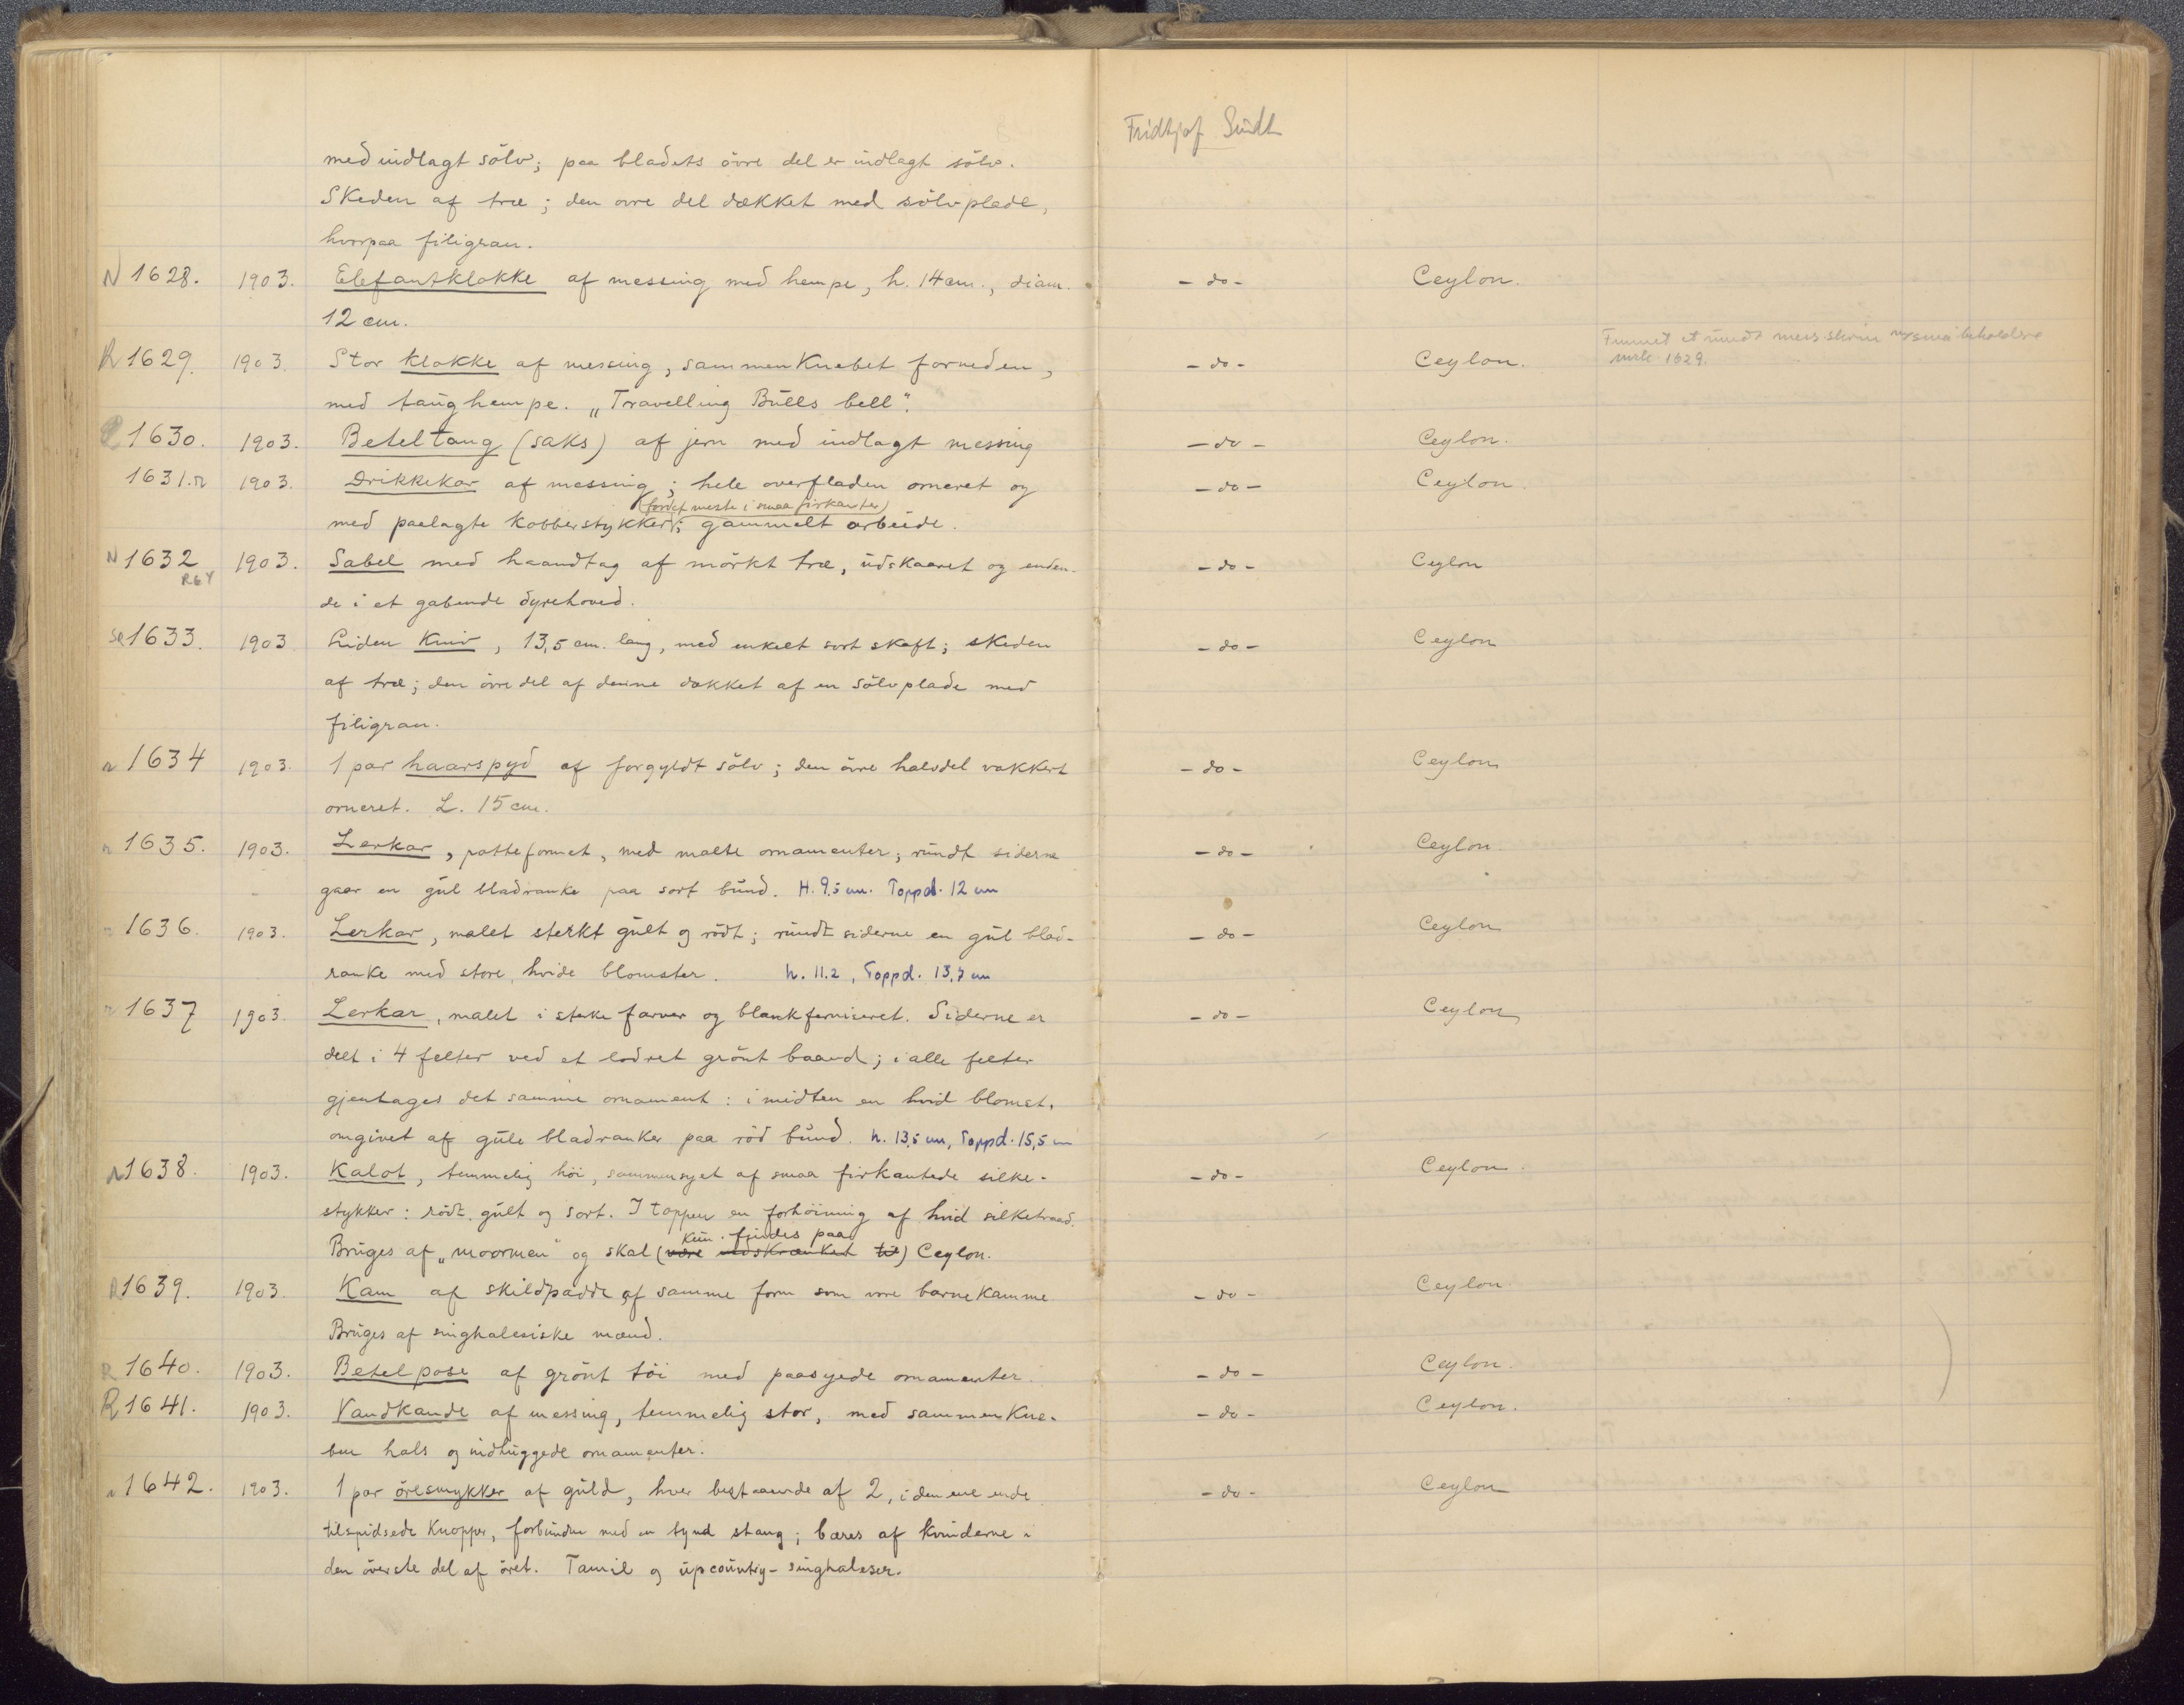 Fridtjof Sundt
med indlagt sölv; paa bladets övre del er indlagt sölv.
Skeden af træ; den ovre del dækket med sölvplade,
hvorpaa filigran.
N 1628. 1903. Elefantklokke af messing med hempe, h. 14 cm., diam. - do - Ceylon.
12 cm.
R 1629. 1903. Stor klokke af messing, sammenknebet forneden, - do - Ceylon. Funnet et rundt mess skrin m/små beholdere
mrk. 1629.
med taughempe. „Travelling Bulls bell".
R 1630. 1903. Beteltang (saks) af jern med indlagt messing - do - Ceylon.
1631. R 1903. Drikkekar af messing; hele overfladen orneret og - do - Ceylon.
(fordet meste i smaa firkanter)
med paalagte kobberstykker; gammelt arbeide.
N 1632 1903. Sabel med haandtag af mörkt træ, udskaaret og enden- - do - Ceylon
RGY
de i et gabende dyrehoved.
se 1633. 1903 Liden Kniv, 13,5 cm. lang, med enkelt sort skaft; skeden - do - Ceylon
af træ; den övre del af denne dækket af en sölvplade med
filigran.
n 1634 1903. 1 par haarspyd af forgyldt sölv; den övre halvdel vakkert - do - Ceylon
orneret. L. 15 cm.
n 1635. 1903. Lerkar, potteformet, med malte ornamenter; rundt siderne - do - Ceylon.
gaar en gul bladranke paa sort bund. H. 9,5 cm. Toppd. 12 cm
1636. 1903. Lerkar, malet sterkt gult og rödt; rundt siderne en gul blad- - do - Ceylon
ranke med store, hvide blomster. h. 11.2, Toppd. 13,7 cm
1637 1903. Lerkar, malet i sterke farver og blankferniseret. Siderne er - do - Ceylon
delt i 4 felter ved et lodret grönt baand; i alle felter
gjentages det samme ornament: i midten en hvid blomst,
omgivet af gule bladranker paa röd bund. h. 13,5 cm, Toppd. 15,5 cm
n 1638. 1903. Kalot, temmelig höi, sammensyet af smaa firkantede silke- - do - Ceylon.
stykker: rödt, gult og sort. I toppen en forhöining af hvid silketraad.
kun findes paa
Bruges af „moormen" og skal (være indskrænket til) Ceylon.
R 1639. 1903. Kam af skildpadde af samme form som vore barnekamme - do - Ceylon.
Bruges af singhalesiske mænd.
R 1640. 1903. Betelpose af grönt töi med paasyede ornamenter. - do - Ceylon.
R 1641. 1903. Vandkande af messing, temmelig stor, med sammenkne- - do - Ceylon.
ben hals og indhuggede ornamenter.
n 1642. 1903. 1 par öresmykker af guld, hver bestaaende af 2, i den ene ende - do - Ceylon
tilspidsede Knopper, forbundne med en tynd stang; bæres af kvinderne i
den överste del af öret. Tamil og upcountry-singhaleser.